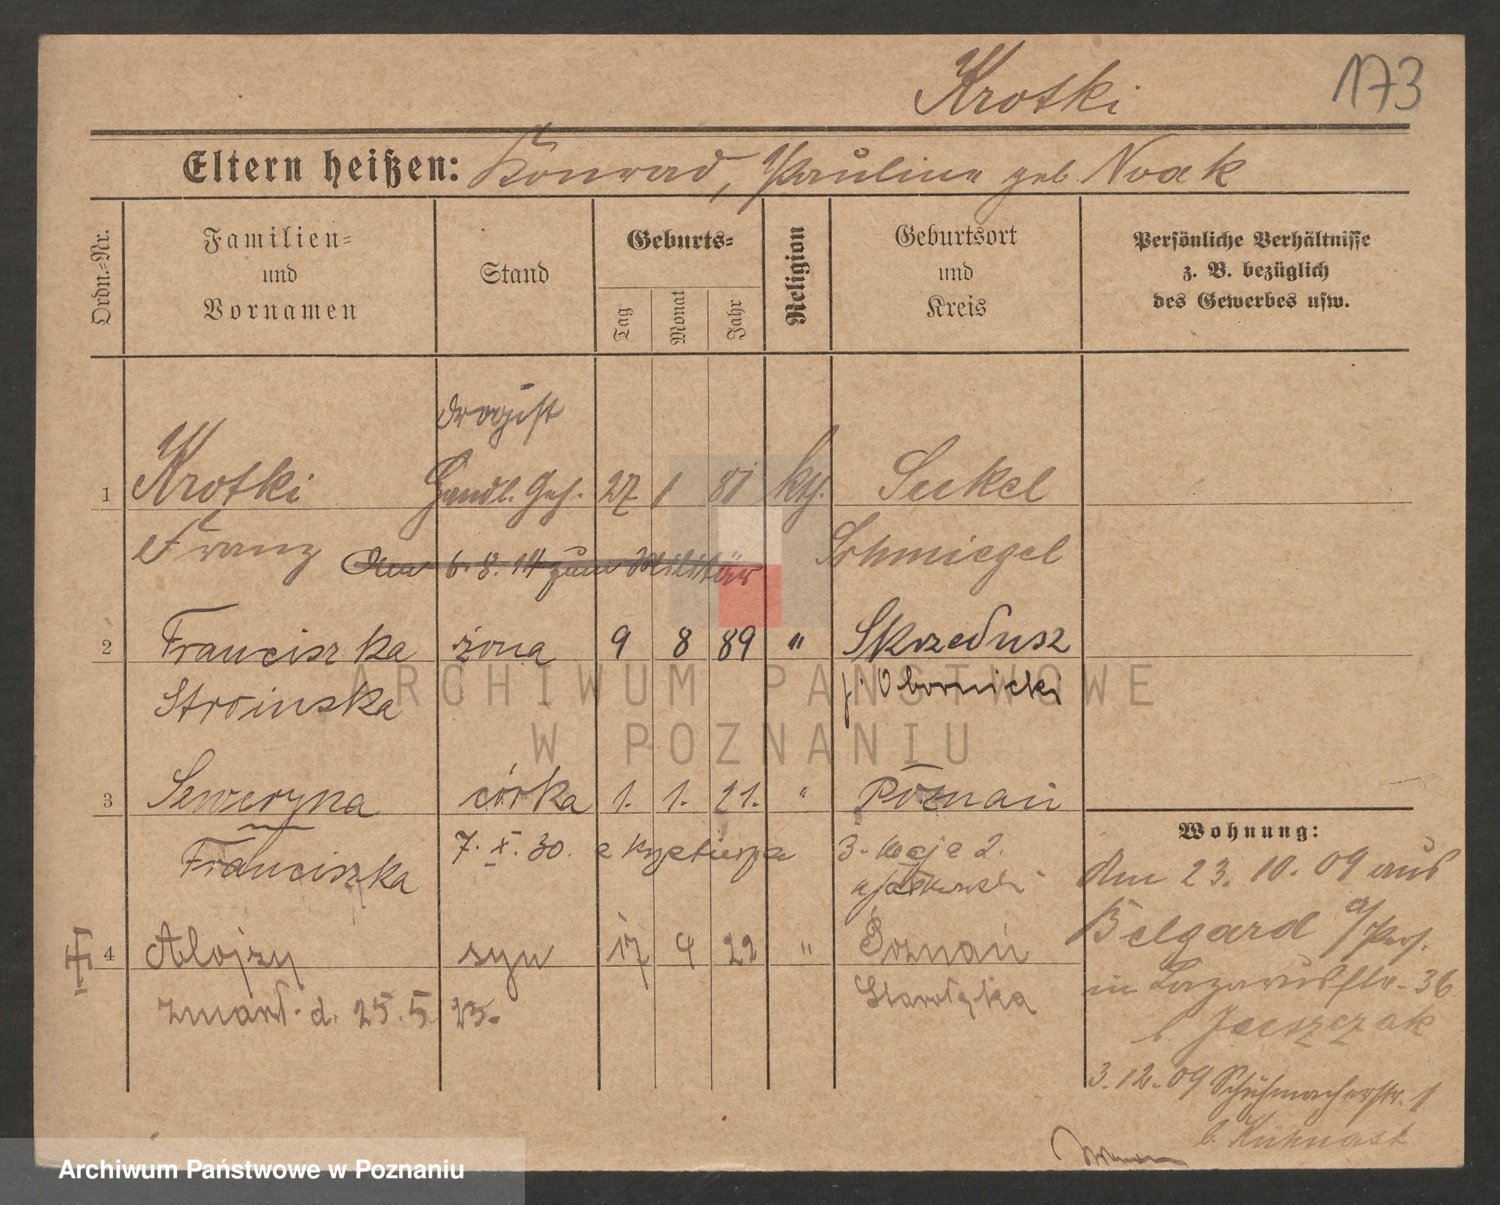 Krotki
173
Eltern heißen: Konrad, Pauline geb Noak
Ordn.=Nr.
Familien=
und
Vornamen
Stand
Geburts=
Tag
Monat
Jahr
Religion
Geburtsort
und
Kreis
Persönliche Verhältnisse
z. B. bezüglich
des Gewerbes usw.
Drogist
1 Krotki Handl. Geh. 27 1 81 kth.
Franz Schmiegel
6. 8. 14 zum Militär
2 Franciszka żona 9 8 89 " Skrzedusz
Stroinska Obornicki
3 Seweryna córka 1. 1. 21. " Poznań
Franciszka 7. X. 30. 3. Maja 2.
4 Alojzy syn 17 9 22 " Poznań
zmarł. d. 25. 5. 23. Starołęka
Wohnung:
Am 23. 10. 09 aus
Belgard a/Pers.
in Lazarusstr. 36
b. Jaeszczak
3. 12. 09 Schuhmacherstr. 1
b. Kühnast
ARCHIWUM PAŃSTWOWE
W POZNANIU
Archiwum Państwowe w Poznaniu